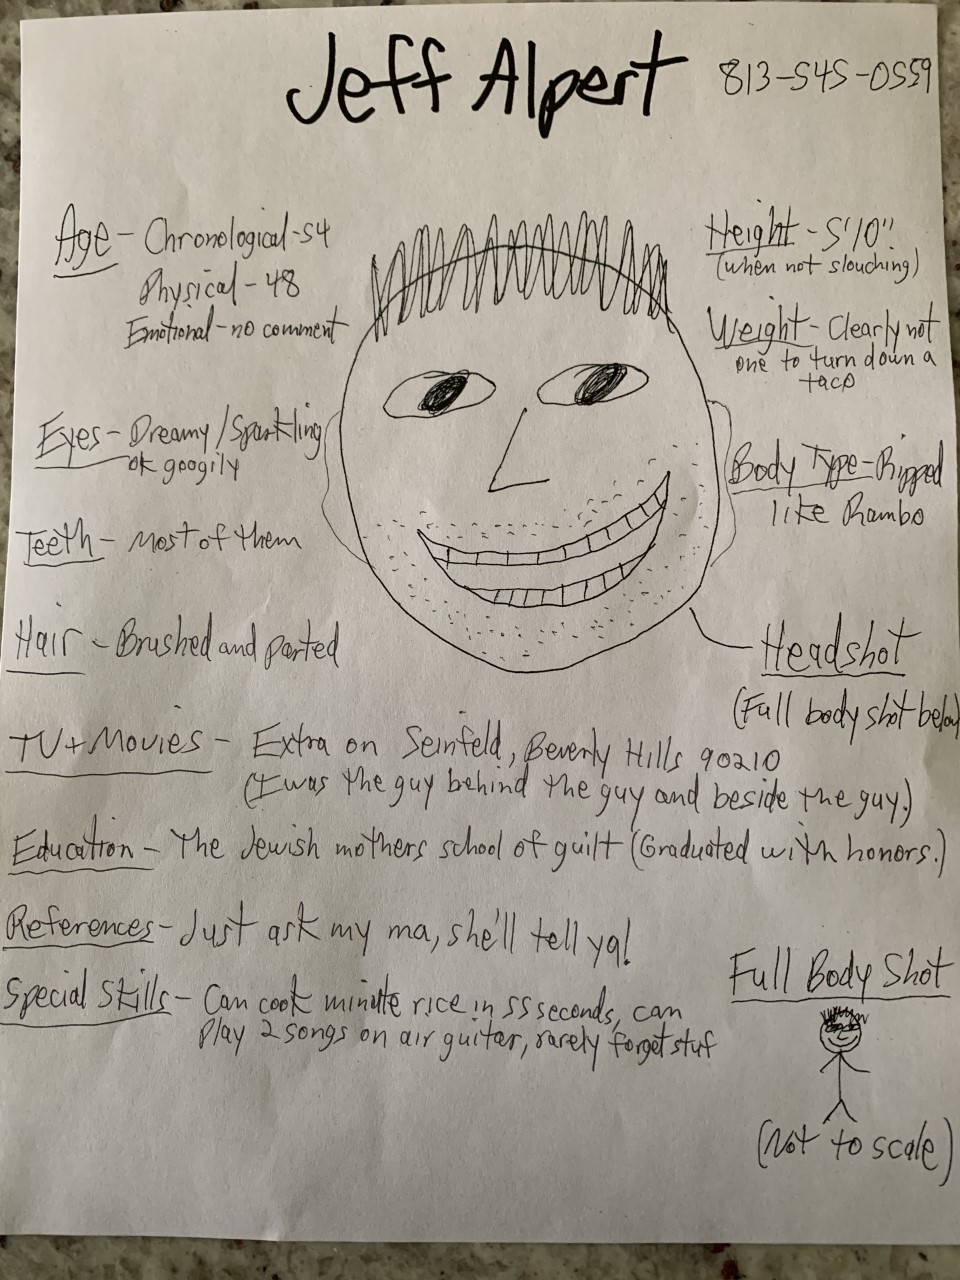 Jeff Alpert
813-545-0559
Age - Chronological-54
Physical - 48
Emotional - no comment
Height - 5'10"
(when not slouching)
Weight - Clearly not
one to turn down a
taco
Eyes - Dreamy/Sparkling
ok googily
Body Type - Ripped
like Rambo
Teeth - Most of them
Hair - Brushed and parted
Headshot
(Full body shot below
TV + Movies - Extra on Seinfeld, Beverly Hills 90210
(I was the guy behind the guy and beside the guy.)
Education - The Jewish mothers school of guilt (Graduated with honors.)
References - Just ask my ma, she'll tell ya!
Special Skills - Can cook minute rice in 55 seconds, can
play 2 songs on air guitar, rarely forget stuf
Full Body Shot
(Not to scale)